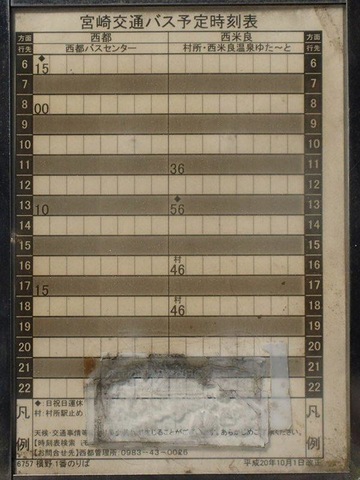 宮崎交通バス予定時刻表
方面 西都 西米良 方面
行先 西都バスセンター 村所・西米良温泉ゆた～と 行先
6 ◆15 6
7 7
8 00 8
9 9
10 10
11 36 11
12 12
13 10 ◆56 13
14 14
15 15
16 村46 16
17 15 17
18 村46 18
19 19
20 20
21 21
22 22
凡例 ◆：日祝日運休 凡例
村：村所駅止め
天候・交通事情等
【時刻表検索
【お問合せ先】西都管理所 0983-43-0026
6757 横野 1番のりば 平成20年10月1日改正